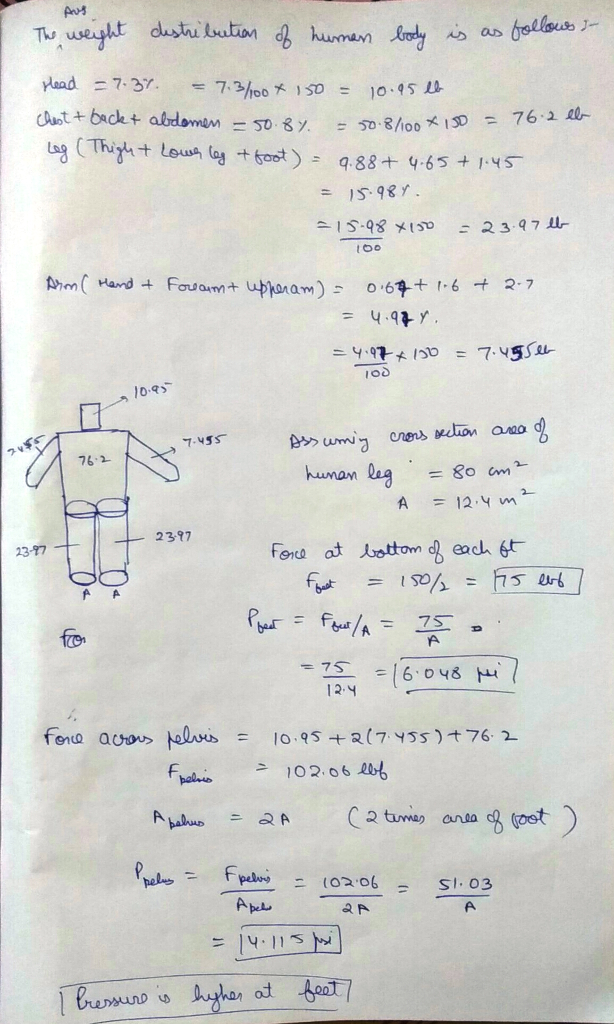 Ans
The weight distribution of human body is as follows :-
Head = 7.3% = 7.3/100 * 150 = 10.95 lb
Chest + back + abdomen = 50.8% = 50.8/100 * 150 = 76.2 lb
Leg (Thigh + Lower leg + foot) = 9.88 + 4.65 + 1.45
= 15.98%.
= 15.98/100 * 150 = 23.97 lb
Arm (Hand + Forearm + Upperarm) = 0.67 + 1.6 + 2.7
= 4.97%.
= 4.97/100 * 150 = 7.455 lb
10.95
7.455
7.455
76.2
23.97
23.97
A A
For
Assuming cross section area of
human leg = 80 cm²
A = 12.4 in²
Force at bottom of each ft
Ffeet = 150/2 = 75 lbf
Pfeet = Ffeet/A = 75/A
= 75/12.4 = 6.048 psi
Force across pelvis = 10.95 + 2(7.455) + 76.2
Fpelvis = 102.06 lbf
Apelvis = 2A (2 times area of foot)
Ppelvis = Fpelvis/Apelvis = 102.06/2A = 51.03/A
= 4.115 psi
Pressure is higher at feet